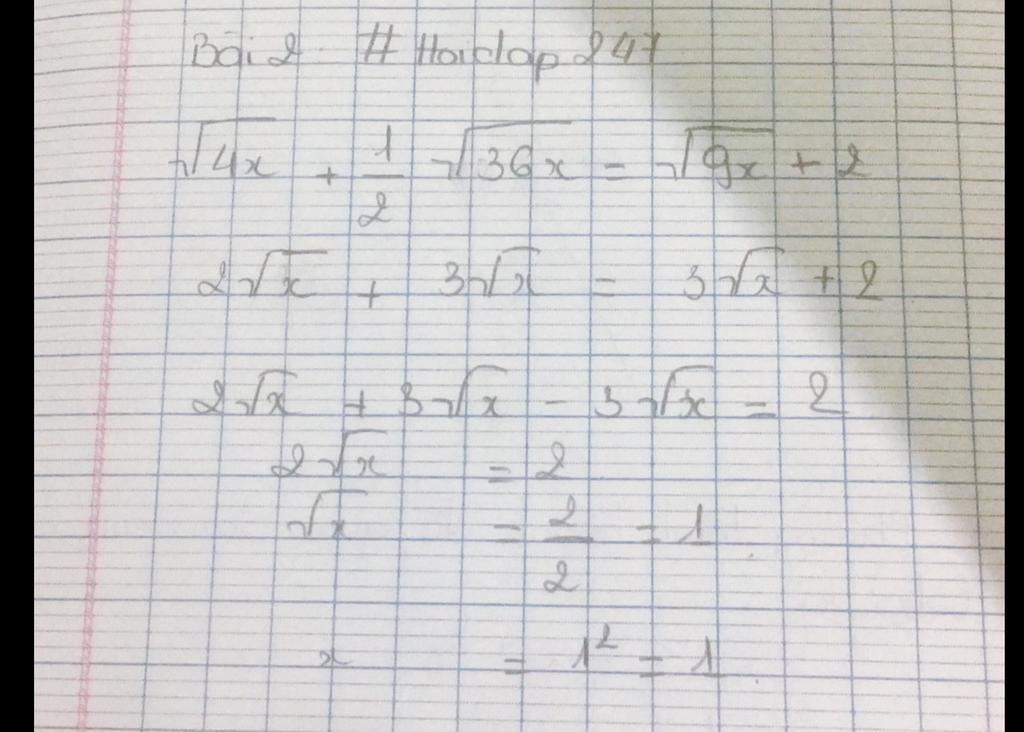 Bài 2 # Hoidap 247
√4x + 1/2 √36x = √9x + 2
2√x + 3√x = 3√x + 2
2√x + 3√x - 3√x = 2
2√x = 2
√x = 2/2 = 1
x = 1² = 1